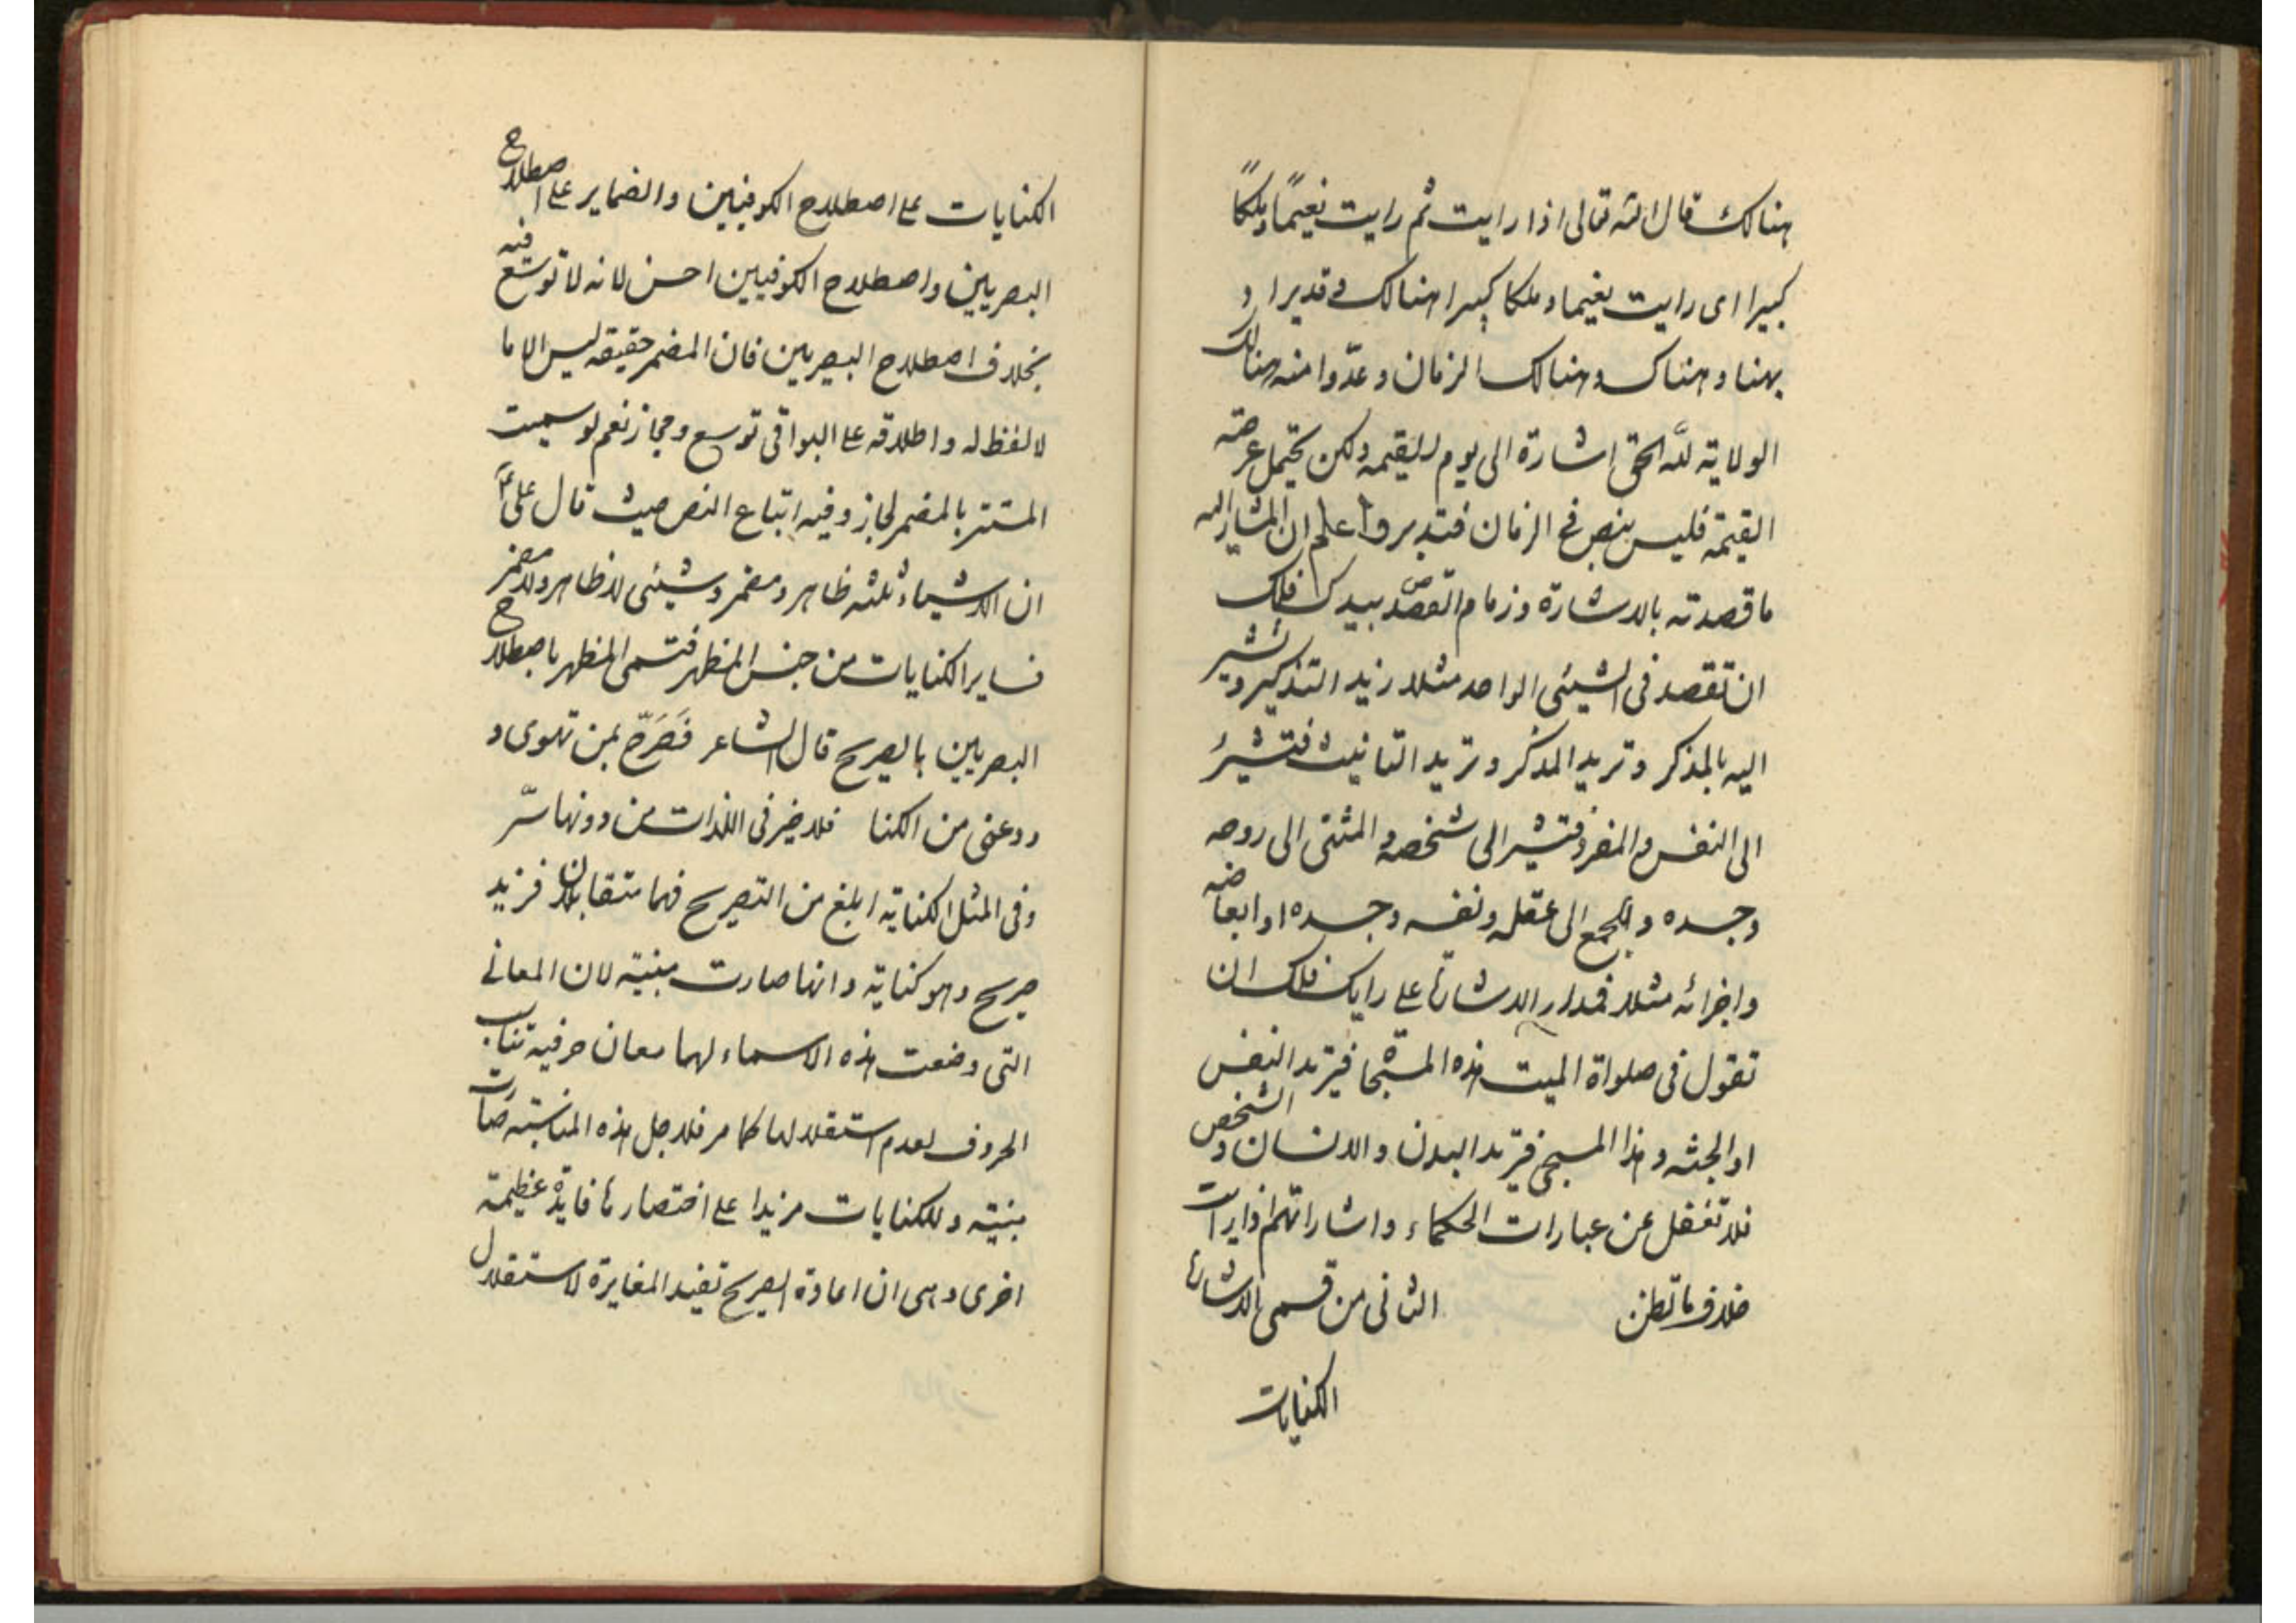 هنالك قال الله تعالى اذا رايت ثم رايت نعيماً وملكاً
كبيرا اى رايت نعيما وملكا كبيرا هنالك وقد يراد
بهنا وهناك وهنالك الزمان وعدّوا منه هنالك
الولاية للّه الحق اشارة الى يوم القيمه ولكن يحتمل عرصة
القيمة فليس بنص فى الزمان فتدبر واعلم ان المشار اليه
ما قصدته بالاشارة وزمام القصد بيدك فلك
ان تقصد فى الشيئى الواحد مثلا زيد التذكير وتشير
اليه بالمذكر وتريد المذكر وتريد التانيث فتشير
الى النفس والمفرد فتشير الى شخصه والمثنى الى روحه
وجسده والجمع الى عقله ونفسه وجسده او ابعاضه
واجزائه مثلا فمدار الاشارة على رايك فلك ان
تقول فى صلواة الميت هذه المسجّاة فتريد النفس
او الجثه وهذا المسجى فتريد البدن والانسان والشخص
فلا تغفل عن عبارات الحكماء واشاراتهم اذا رايت
خلاف ما تظن الثانى من قسمى الاشارة
الكنايات
الكنايات على اصطلاح الكوفيين والضماير على اصطلاح
البصريين واصطلاح الكوفيين احسن لانه لا توسّع فيه
بخلاف اصطلاح البصريين فان المضمر حقيقه ليس الا ما
لا لفظ له واطلاقه على البواقى توسع ومجاز نعم لو سميت
المستتر بالمضمر لجاز وفيه اتباع النص حيث قال على ع
ان الاشياء ثلثه ظاهر ومضمر وشيئى لا ظاهر ولا مضمر
فساير الكنايات من جنس المظهر فتسمى المظهر باصطلاح
البصريين بالصريح قال الشاعر فَصَرّح بمن تهوى و
ودعنى من الكنا فلا خير فى اللذات من دونها سّر
وفى المثل الكناية ابلغ من التصريح فهما متقابلان فزيد
صريح وهو كناية وانها صارت مبنية لان المعانى
التى وضعت هذه الاسماء لهما معان حرفية تناسب
الحروف لعدم استقلالها كما مر فلاجل هذه المناسبة صارت
مبنية وللكنايات مزيدا على اختصارها فايدة عظيمة
اخرى وهى ان اعادة الصريح تفيد المغايرة لاستقلال